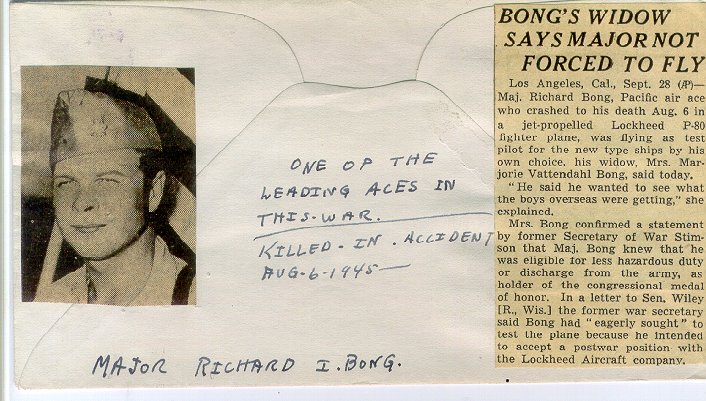 ONE OF THE
LEADING ACES IN
THIS-WAR.
KILLED-IN.ACCIDENT
AUG-6-1945—
MAJOR RICHARD I. BONG.
BONG'S WIDOW
SAYS MAJOR NOT
FORCED TO FLY
Los Angeles, Cal., Sept. 28 (AP)—
Maj. Richard Bong, Pacific air ace
who crashed to his death Aug. 6 in
a jet-propelled Lockheed P-80
fighter plane, was flying as test
pilot for the new type ships by his
own choice, his widow, Mrs. Mar-
jorie Vattendahl Bong, said today.
"He said he wanted to see what
the boys overseas were getting," she
explained.
Mrs. Bong confirmed a statement
by former Secretary of War Stim-
son that Maj. Bong knew that he
was eligible for less hazardous duty
or discharge from the army, as
holder of the congressional medal
of honor. In a letter to Sen. Wiley
[R., Wis.] the former war secretary
said Bong had "eagerly sought" to
test the plane because he intended
to accept a postwar position with
the Lockheed Aircraft company.